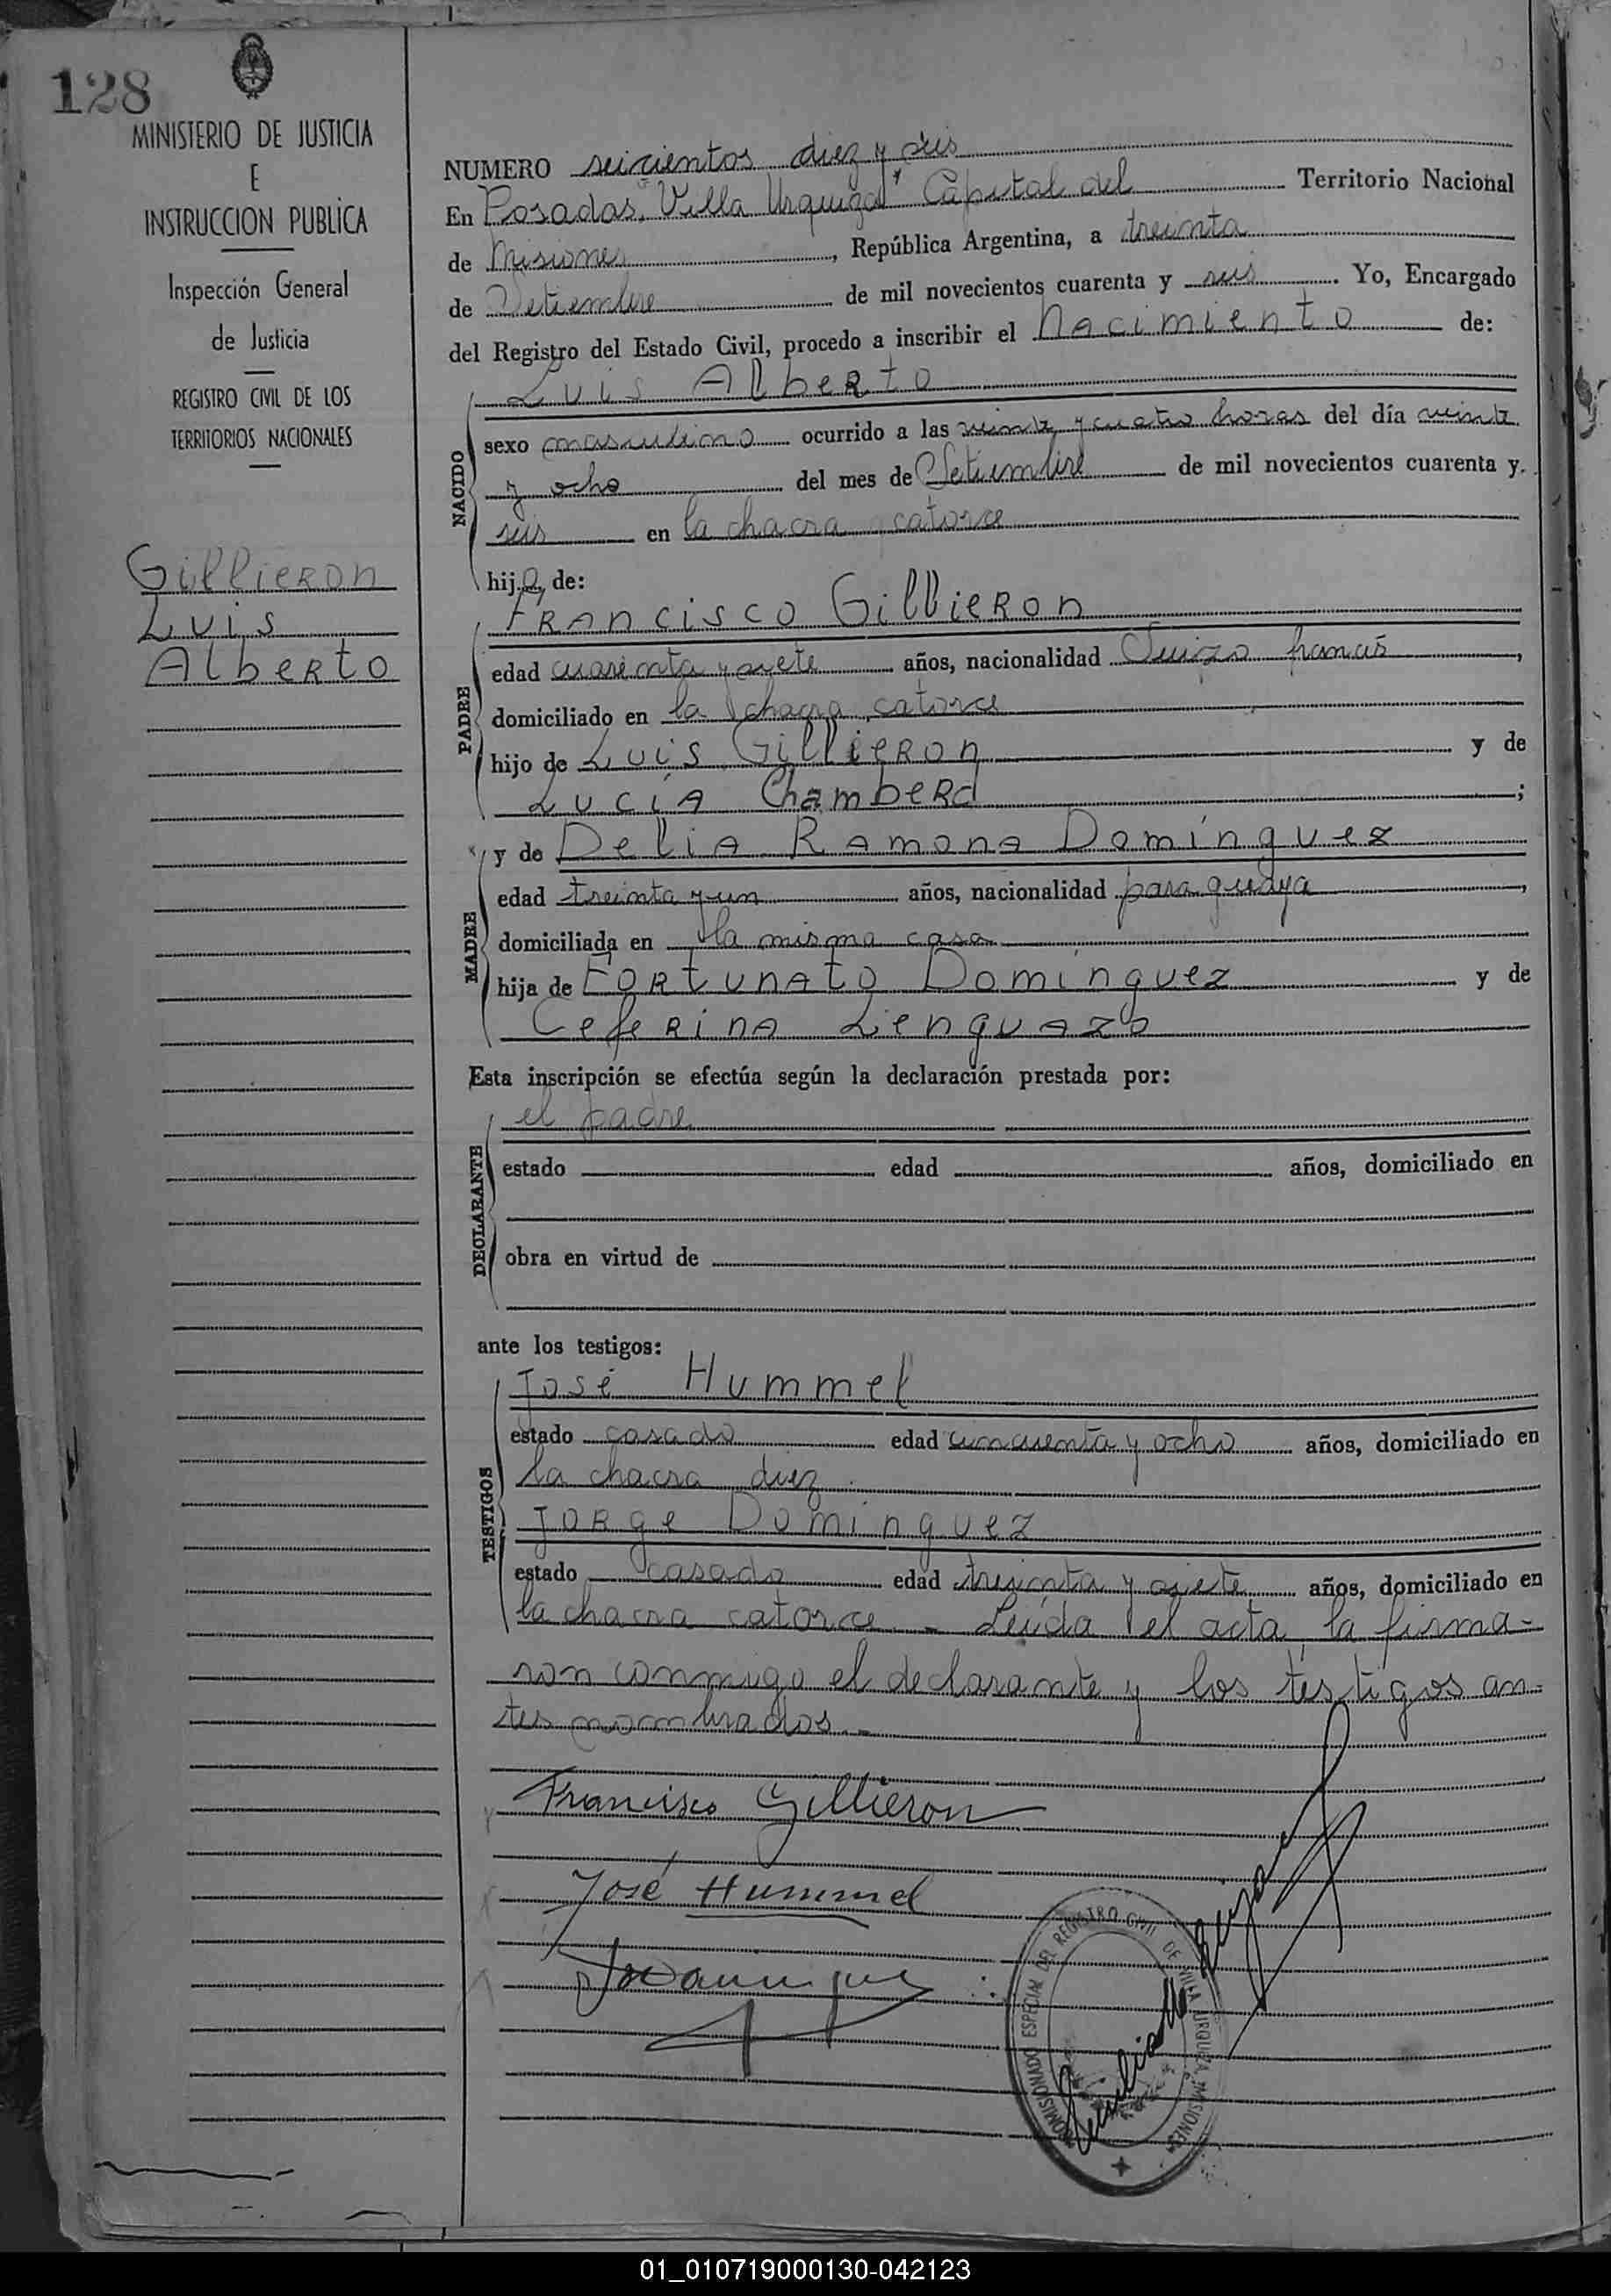 128
MINISTERIO DE JUSTICIA
E
INSTRUCCION PUBLICA
Inspección General
de Justicia
REGISTRO CIVIL DE LOS
TERRITORIOS NACIONALES
Gillieron
Luis
Alberto
NUMERO seicientos diez y seis
En Posadas, "Villa Urquiza" Capital del Territorio Nacional
de Misiones, República Argentina, a treinta
de Setiembre de mil novecientos cuarenta y seis. Yo, Encargado
del Registro del Estado Civil, procedo a inscribir el Nacimiento de:
NACIDO
Luis Alberto
sexo masculino ocurrido a las veinte y cuatro horas del día veinte
y ocho del mes de Setiembre de mil novecientos cuarenta y
seis en la chacra catorce
hijo de:
PADRE
Francisco Gillieron
edad cuarenta y siete años, nacionalidad Suizo francés,
domiciliado en la chacra catorce
hijo de Luis Gillieron y de
Lucía Chamberd;
MADRE
y de Delia Ramona Domínguez
edad treinta y un años, nacionalidad paraguaya,
domiciliada en la misma casa
hija de Fortunato Domínguez y de
Ceferina Lenguazo
Esta inscripción se efectúa según la declaración prestada por:
DECLARANTE
el padre
estado edad años, domiciliado en
obra en virtud de
ante los testigos:
TESTIGOS
José Hummel
estado casado edad cincuenta y ocho años, domiciliado en
la chacra diez
Jorge Domínguez
estado casado edad treinta y siete años, domiciliado en
la chacra catorce. - Leída el acta, la firma-
ron conmigo el declarante y los testigos an-
tes nombrados.-
Francisco Gillieron
José Hummel
JDominguez
COMISIONADO ESPECIAL DEL REGISTRO CIVIL DE VILLA URQUIZA MISIONES
01_010719000130-042123